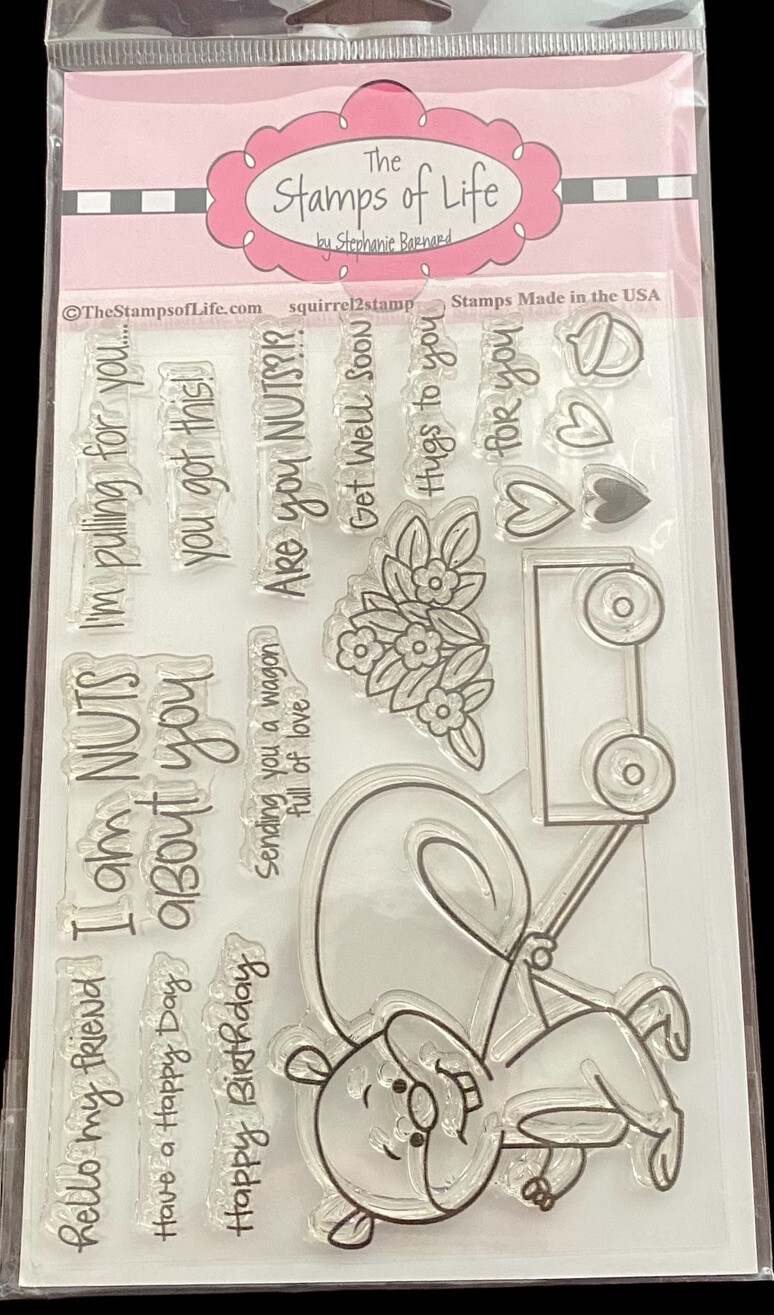 The
Stamps of Life
by Stephanie Barnard
©TheStampsofLife.com squirrel2stamp Stamps Made in the USA
hello my friend
I am NUTS
about you
I'm pulling for you...
Have a Happy Day
you got this!
Happy Birthday
Sending you a wagon
full of love
Are you NUTS?!?
Get Well Soon
Hugs to you
for you